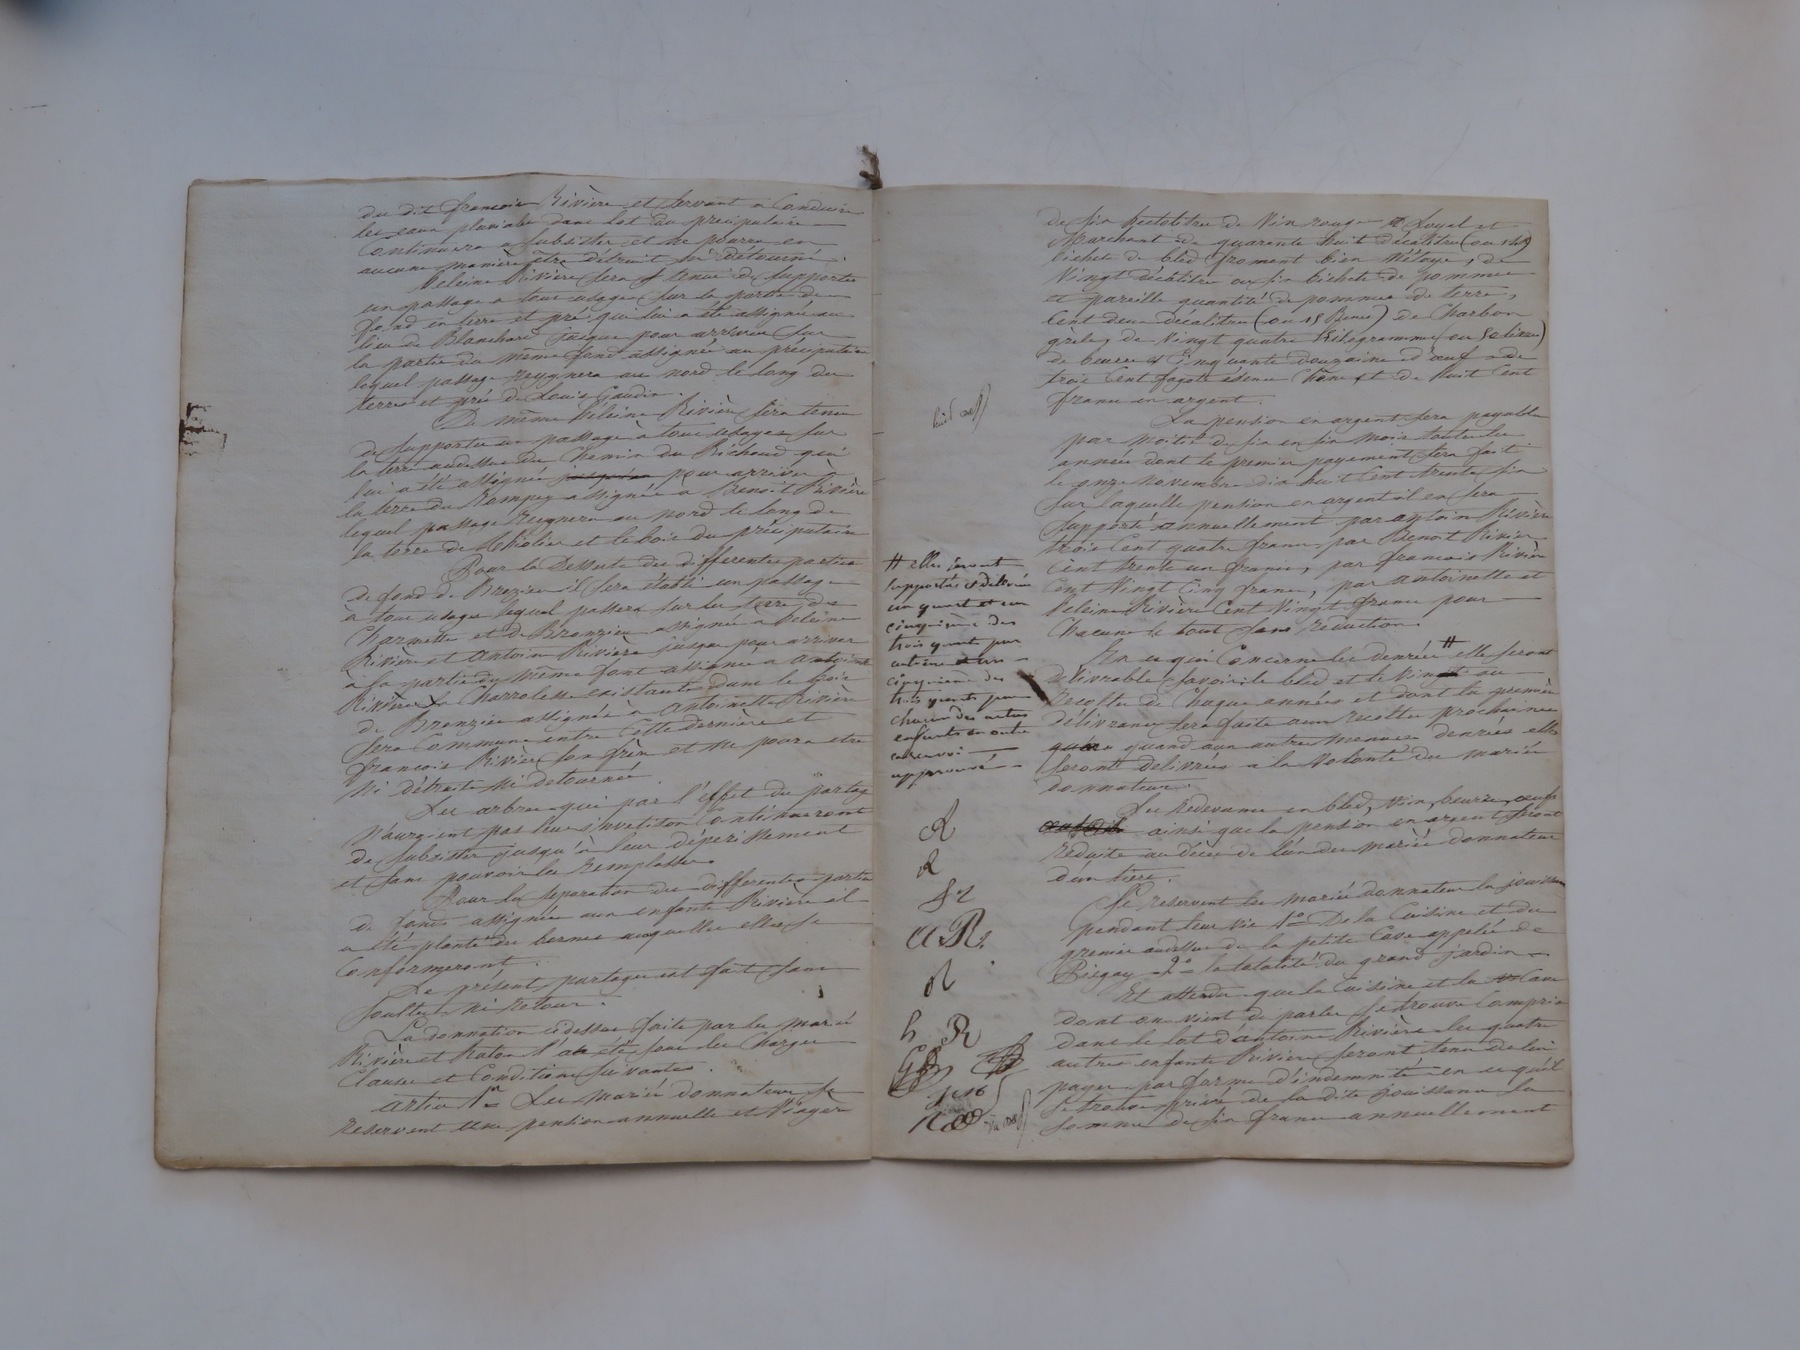 du dit françois Rivière et servant a Conduire
les eaux pluviales dans le lot du précipulaire
Continuera a subsister et ne pourra en
aucune manière être détruit ni détourné.
héleine Rivière sera tenue de supporter
un passage a tous usages sur la portion de
fond en terre et pré qui lui a été assignée au
lieu de Blanchard jusque pour arriver sur
la partie du même fond assignée au précipulaire
lequel passage reygnera au nord le long des
terres et prés de Louis Gaudin.
De même héleine Rivière sera tenue
de supporter un passage à tous usages sur
la terre audessus du Chemin du Richoud qui
lui a été assignée pour arriver à
la terre du Rompey assignée a Benoit Rivière
lequel passage reignera au nord le long de
la terre de et le bois du précipulaire
Pour la Desserte des differentes parties
de fond de Bronzieu il sera établi un passage
à tous usages lequel passera sur les terres des
Charmettes et de Bronzieu assignées a héleine
Rivière et Antoine Rivière jusque pour arriver
à la partie du même fond assignée a antoine
Rivière la Charrolesse existante dans le bois
de Bronzieu assignée à antoinette Rivière
sera Commune entre Cette dernière et
françois Rivière son frère et ne poura etre
ni détruite ni detournée.
Les arbres qui par l'effet du partage
n'auroient pas leur Continueront
de subsister jusqu'à leur dépérissement
et sans pouvoir les remplasser.
Pour la séparation des differentes parties
de fonds assignées aux enfants Rivière il
a été planté des bornes auquelles elles se
Conformeront.
Le présent partage est fait sans
soulte ni retour.
La donnation cidessus faite par les mariés
Rivière et Raton l'a été sous les Charges
Clauses et Conditions suivantes.
article 1er Les mariés donnateurs se
reservent une pension annuelle et viagère
de six hectolitres de Vin rouge Loyal et
Marchant de quarante huit décalitres (ou
bichets de bled froment bien nétoyé, de
Vingt décalitres ou six bichets de pommes
et pareille quantité de pommes de terre,
Cent deux décalitres (ou 15 Bennes) de Charbon
grèle, de Vingt quatre kilogrammes (ou 50 livres)
de beurre Cinquante douzaines d'œufs de
trois Cent fagots Chêne et de huit Cent
francs en argent.
La pension en argent sera payable
par moitié de six en six mois toutes les
années dont le premier payement sera fait
le onze novembre dix huit Cent trente six
sur laquelle pension en argent il en sera
supporté annuellement par antoine Rivière
trois Cent quatre francs, par Benoit Rivière
Cent trente un francs, par françois Rivière
Cent Vingt Cinq francs, par antoinette et
héleine Rivière Cent Vingt francs pour
Chacune le tout sans réduction.
En ce qui Concerne les denrées # elles seront
delivrables savoir le bled et le Vin au
recoltes de Chaque années et dont la première
délivrance sera faite aux recoltes prochaines
quand aux autres menues denrées elles
seront delivrées a la Volonté des mariés
donnateurs.
Les Redevances en bled, Vin, beurre, œufs
ainsi que la pension en argent seront
réduites au décès de l'un des mariés donnateurs
d'un tiers.
Se reservent les mariés donnateurs la jouissance
pendant leur vie 1o De la Cuisine et du
grenier audessus de la petite Cave appelée de
Piégay 2o la totalité du grand jardin
Et attendu que la Cuisine et la Cave
dont on vient de parler se trouve Compris
dans le lot d'antoine Rivière les quatre
autres enfants Rivière seront tenu de lui
payer par forme d'indemnité en ce qu'il
se trouve privé de la dite jouissance la
somme de six francs annuellement
# elles seront
supportées & délivrées
un quart et un
cinquième des
trois quart par
antoine & un
cinquième des
trois quarts par
chacun des autres
enfants en outre
ce renvoi
approuvé
R
R
f r
A R
R
h R